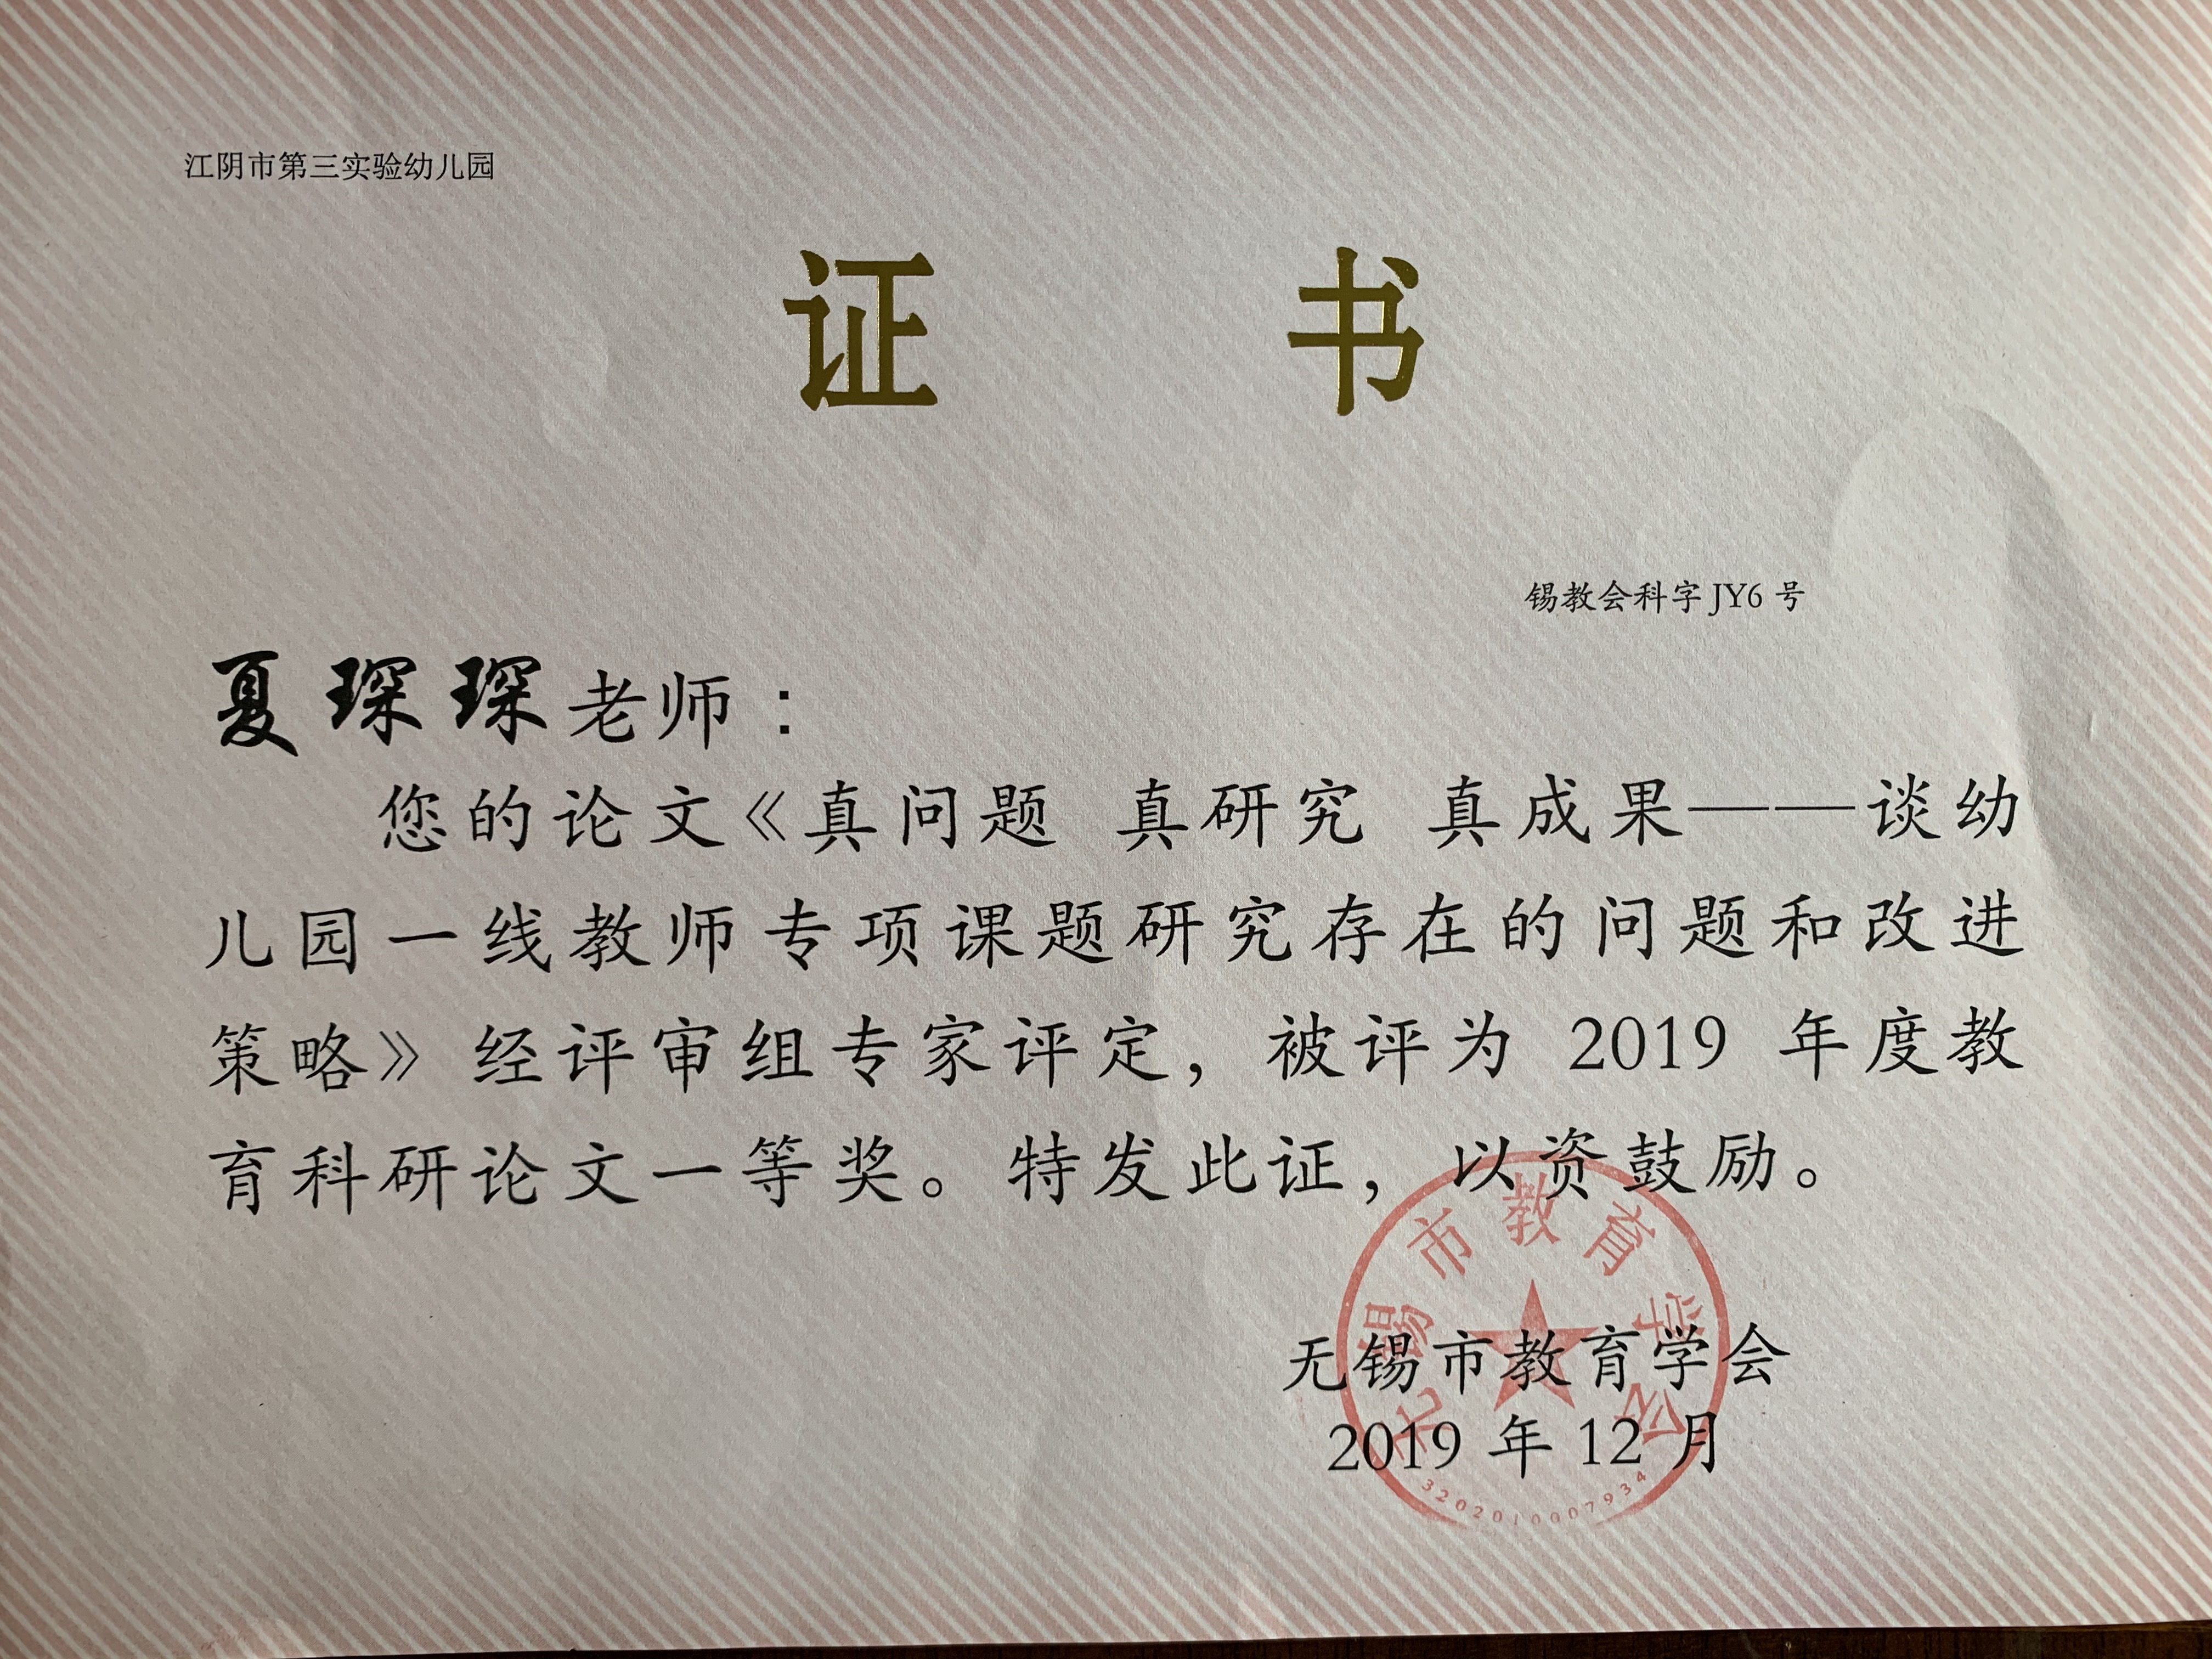 江阴市第三实验幼儿园
证 书
锡教会科字 JY6 号
夏琛琛老师：
您的论文《真问题 真研究 真成果——谈幼
儿园一线教师专项课题研究存在的问题和改进
策略》经评审组专家评定，被评为 2019 年度教
育科研论文一等奖。特发此证，以资鼓励。
无锡市教育学会
2019 年 12 月
无锡市教育学会
3202010007934